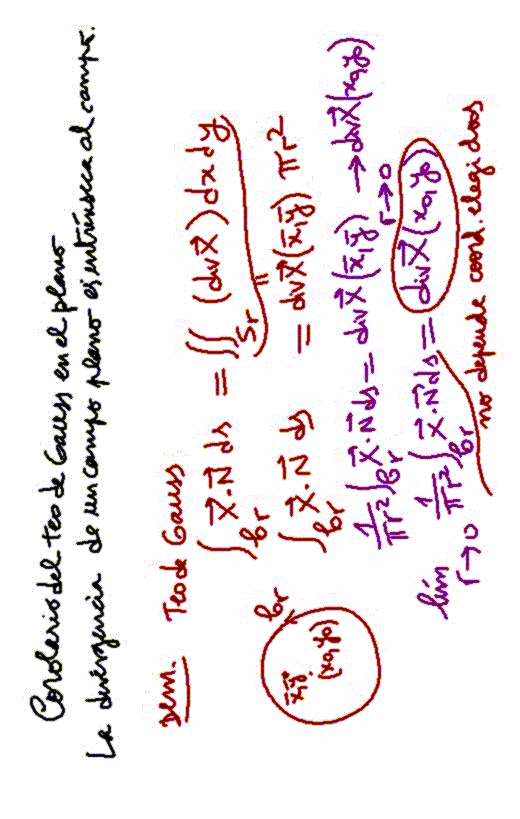 Corolario del teo de Gauss en el plano
La divergencia de un campo plano es intrínseca al campo.
Dem. Teo de Gauss
∫_{𝒞r} X⃗·N⃗ ds = ∬_{Sr} (div X⃗) dx dy
∫_{𝒞r} X⃗·N⃗ ds = div X⃗(x̄,ȳ) πr²
1/πr² ∫_{𝒞r} X⃗·N⃗ ds = div X⃗(x̄,ȳ) → div X⃗(x₀,y₀)
r→0
lím_{r→0} 1/πr² ∫_{𝒞r} X⃗·N⃗ ds = div X⃗(x₀,y₀)
no depende coord. elegidos
𝒞r
x̄,ȳ
(x₀,y₀)